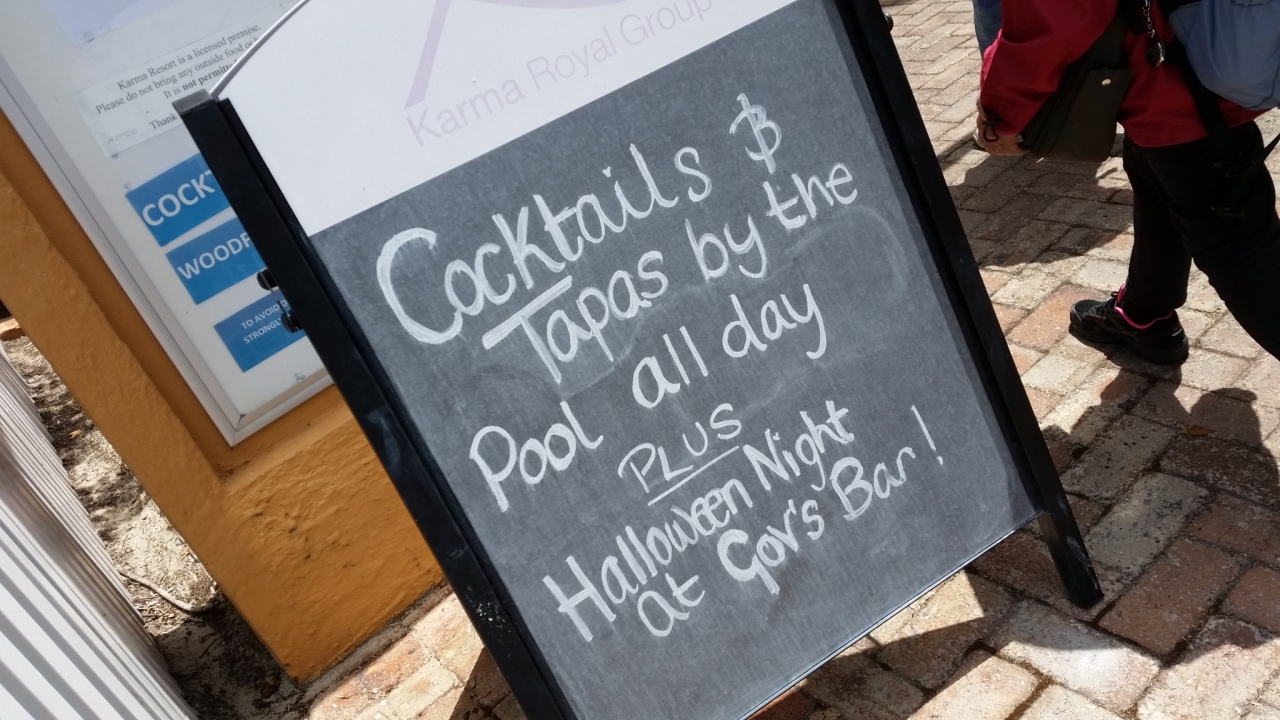 Karma Resort is a licensed premise
Please do not bring any outside food or
It is not permitt
Thank
COCKT
WOODF
TO AVOID
STRONGL
Karma Royal Group
Cocktails &
Tapas by the
Pool all day
PLUS
Halloween Night
at Gov's Bar!